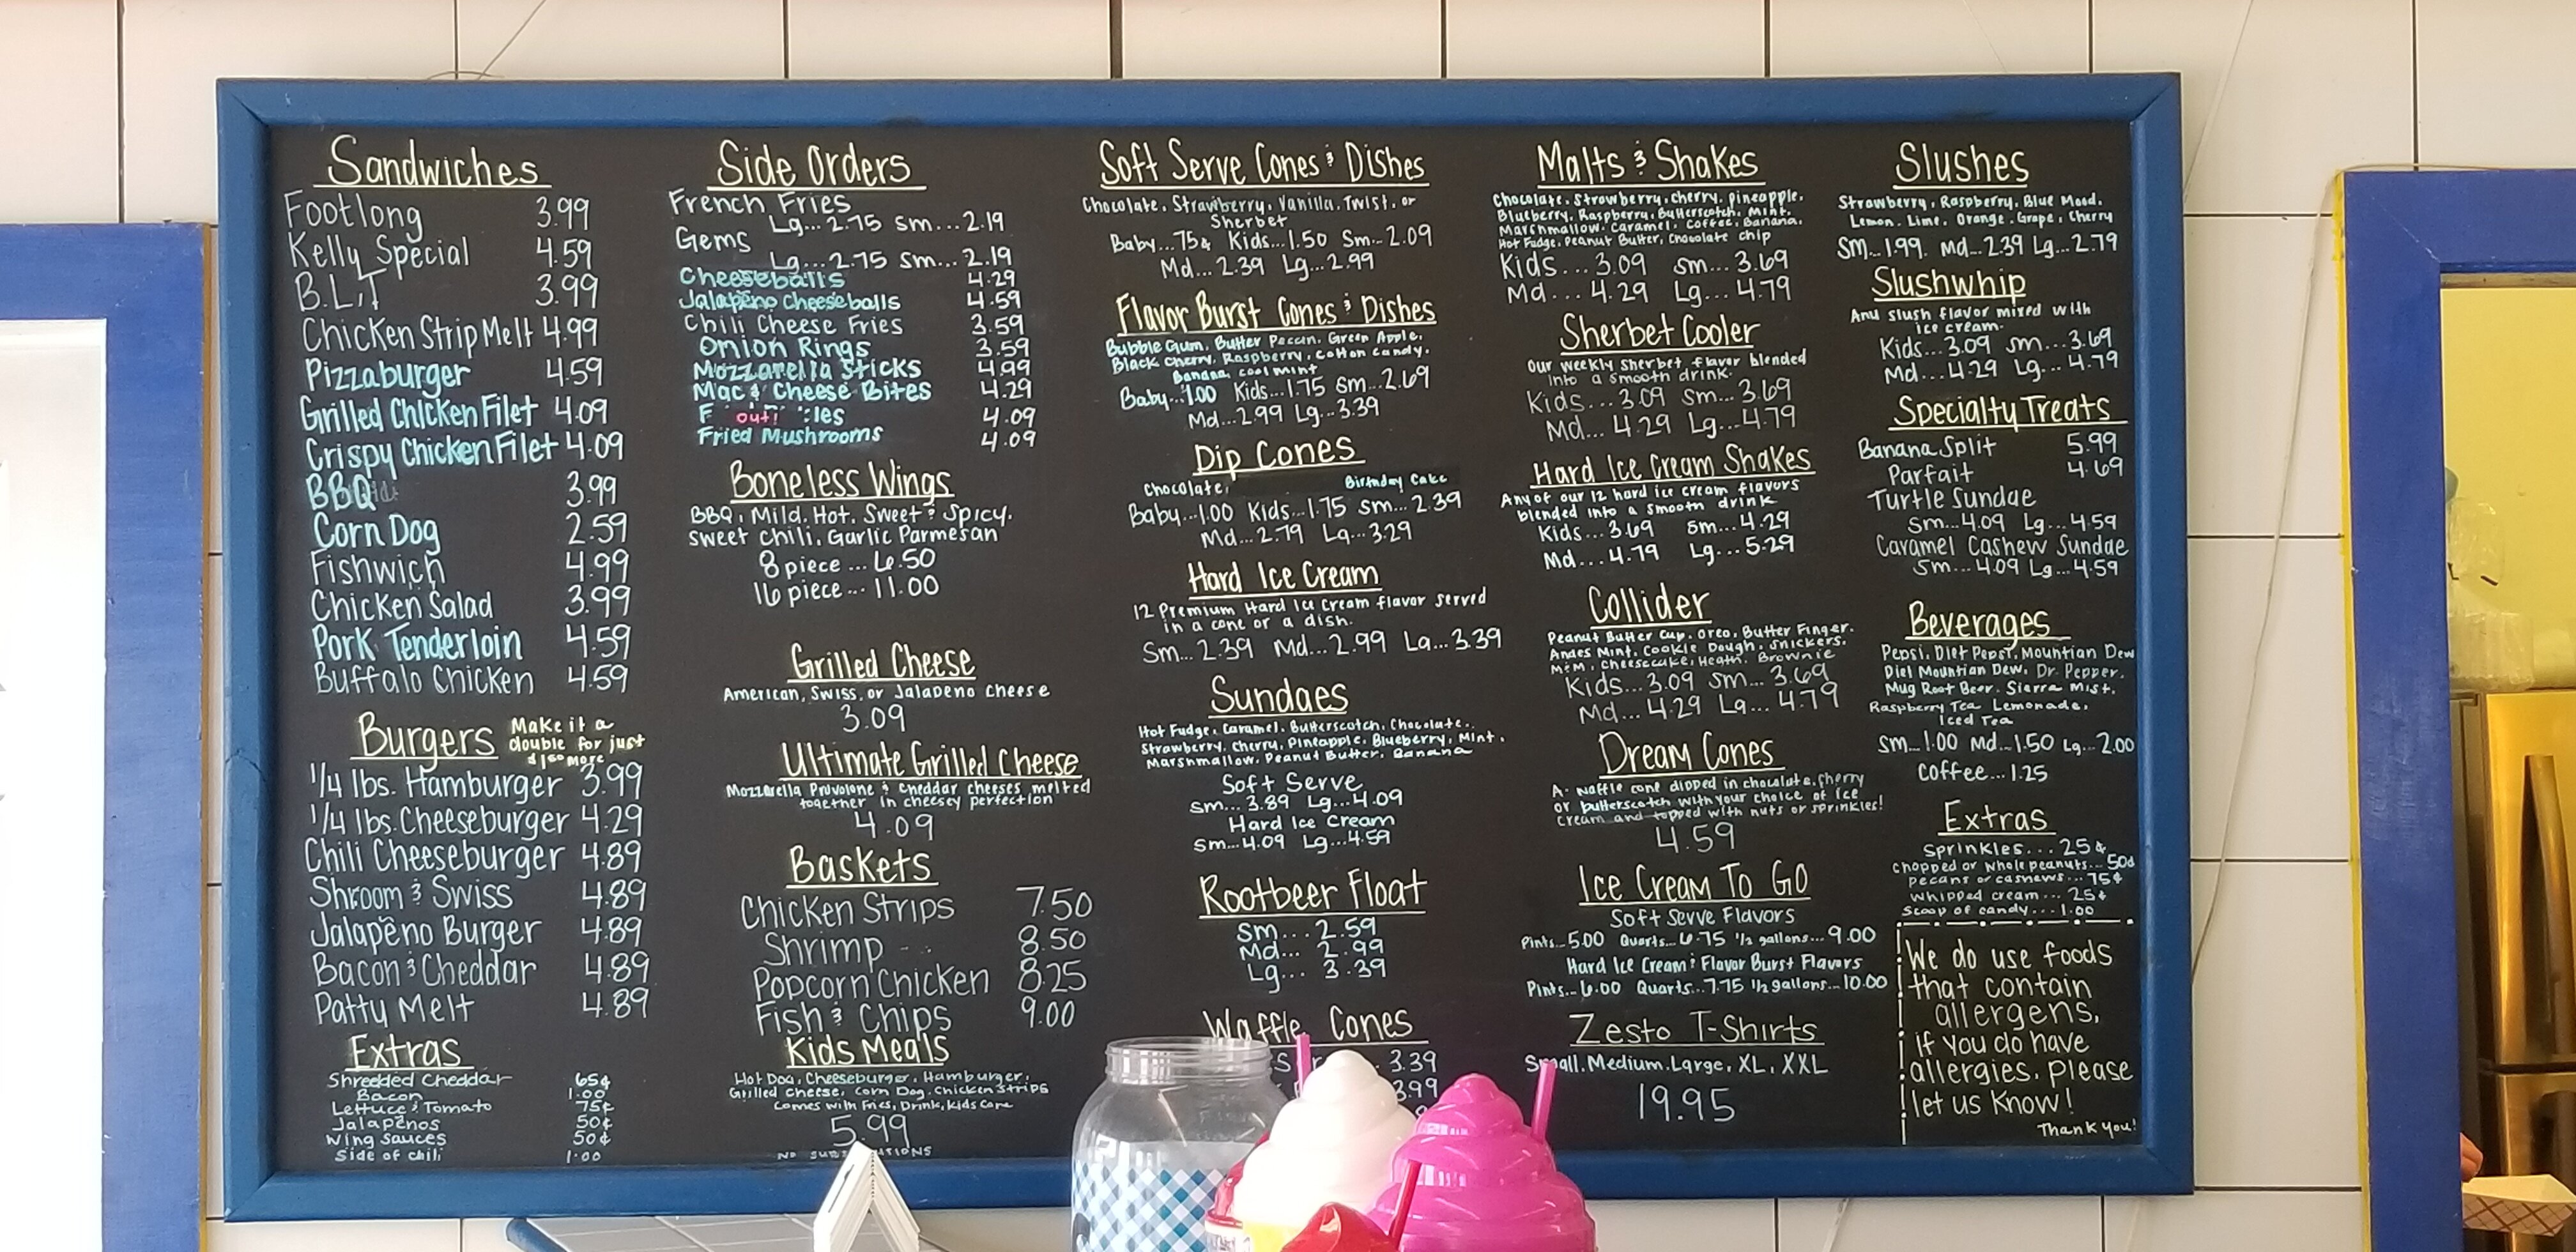 Sandwiches
Footlong 3.99
Kelly Special 4.59
B.L.T 3.99
Chicken Strip Melt 4.99
Pizzaburger 4.59
Grilled Chicken Filet 4.09
Crispy Chicken Filet 4.09
BBQ 3.99
Corn Dog 2.59
Fishwich 4.99
Chicken Salad 3.99
Pork Tenderloin 4.59
Buffalo Chicken 4.59
Burgers Make it a
double for just
more
1/4 lbs. Hamburger 3.99
1/4 lbs. Cheeseburger 4.29
Chili Cheeseburger 4.89
Shroom & Swiss 4.89
Jalapeño Burger 4.89
Bacon & Cheddar 4.89
Patty Melt 4.89
Extras
Shredded Cheddar 65¢
Bacon 1.00
Lettuce & Tomato 75¢
Jalapeños 50¢
Wing Sauces 50¢
Side of chili 1.00
Side Orders
French Fries
Lg...2.75 sm...2.19
Gems
Lg...2.75 sm...2.19
Cheeseballs 4.29
Jalapeño Cheeseballs 4.59
Chili Cheese Fries 3.59
Onion Rings 3.59
Mozzarella Sticks 4.99
Mac & Cheese Bites 4.29
out! 4.09
Fried Mushrooms 4.09
Boneless Wings
BBQ, Mild, Hot, Sweet & Spicy,
Sweet Chili, Garlic Parmesan
8 piece ... 6.50
16 piece ... 11.00
Grilled Cheese
American, Swiss, or Jalapeno Cheese
3.09
Ultimate Grilled Cheese
Mozzarella Provolone & Cheddar cheeses melted
together in cheesey perfection
4.09
Baskets
Chicken Strips 7.50
Shrimp 8.50
Popcorn Chicken 8.25
Fish & Chips 9.00
Kids Meals
Hot Dog, Cheeseburger, Hamburger,
Grilled Cheese, Corn Dog, Chicken Strips
Comes with Fries, Drink, Kids Cone
5.99
NO
Soft Serve Cones & Dishes
Chocolate, Strawberry, Vanilla, Twist, or
Sherbet
Baby...75¢ Kids...1.50 Sm...2.09
Md...2.39 Lg...2.99
Flavor Burst Cones & Dishes
Bubble Gum, Butter Pecan, Green Apple,
Black Cherry, Raspberry, Cotton Candy,
Banana, cool mint
Baby...1.00 Kids...1.75 Sm...2.69
Md...2.99 Lg...3.39
Dip Cones
Chocolate, Birthday Cake
Baby...1.00 Kids...1.75 Sm...2.39
Md...2.79 Lg...3.29
Hard Ice Cream
12 Premium Hard Ice Cream flavor served
in a cone or a dish.
Sm...2.39 Md...2.99 Lg...3.39
Sundaes
Hot Fudge, Caramel, Butterscotch, Chocolate,
Strawberry, Cherry, Pineapple, Blueberry, Mint,
Marshmallow, Peanut Butter, Banana
Soft Serve
Sm...3.89 Lg...4.09
Hard Ice Cream
Sm...4.09 Lg...4.59
Rootbeer Float
Sm... 2.59
Md... 2.99
Lg... 3.39
Waffle Cones
3.39
3.99
Malts & Shakes
Chocolate, Strawberry, Cherry, Pineapple,
Blueberry, Raspberry, Butterscotch, Mint,
Marshmallow, Caramel, Coffee, Banana,
Hot Fudge, Peanut Butter, Chocolate chip
Kids...3.09 Sm...3.69
Md...4.29 Lg...4.79
Sherbet Cooler
Our weekly Sherbet flavor blended
into a smooth drink.
Kids...3.09 Sm...3.69
Md...4.29 Lg...4.79
Hard Ice Cream Shakes
Any of our 12 hard ice cream flavors
blended into a smooth drink
Kids...3.69 Sm...4.29
Md...4.79 Lg...5.29
Collider
Peanut Butter Cup, Oreo, Butter Finger,
Andes Mint, Cookie Dough, Snickers,
M&M, Cheesecake, Heath, Brownie
Kids...3.09 Sm...3.69
Md...4.29 Lg...4.79
Dream Cones
A waffle cone dipped in chocolate, cherry
or butterscotch with your choice of ice
cream and topped with nuts or sprinkles!
4.59
Ice Cream To Go
Soft Serve Flavors
Pints...5.00 Quarts...6.75 1/2 gallons...9.00
Hard Ice Cream & Flavor Burst Flavors
Pints...6.00 Quarts...7.75 1/2 gallons...10.00
Zesto T-Shirts
Small, Medium, Large, XL, XXL
19.95
Slushes
Strawberry, Raspberry, Blue Mood,
Lemon, Lime, Orange, Grape, Cherry
Sm...1.99 Md...2.39 Lg...2.79
Slushwhip
Any slush flavor mixed with
ice cream.
Kids...3.09 Sm...3.69
Md...4.29 Lg...4.79
Specialty Treats
Banana Split 5.99
Parfait 4.69
Turtle Sundae
Sm...4.09 Lg...4.59
Caramel Cashew Sundae
Sm...4.09 Lg...4.59
Beverages
Pepsi, Diet Pepsi, Mountian Dew
Diet Mountian Dew, Dr. Pepper,
Mug Root Beer, Sierra Mist,
Raspberry Tea Lemonade,
Iced Tea
Sm...1.00 Md...1.50 Lg...2.00
Coffee...1.25
Extras
Sprinkles...25¢
Chopped or whole peanuts...50¢
pecans or cashews...75¢
Whipped cream...25¢
Scoop of candy...1.00
We do use foods
that contain
allergens,
if you do have
allergies, please
let us know!
Thank you!